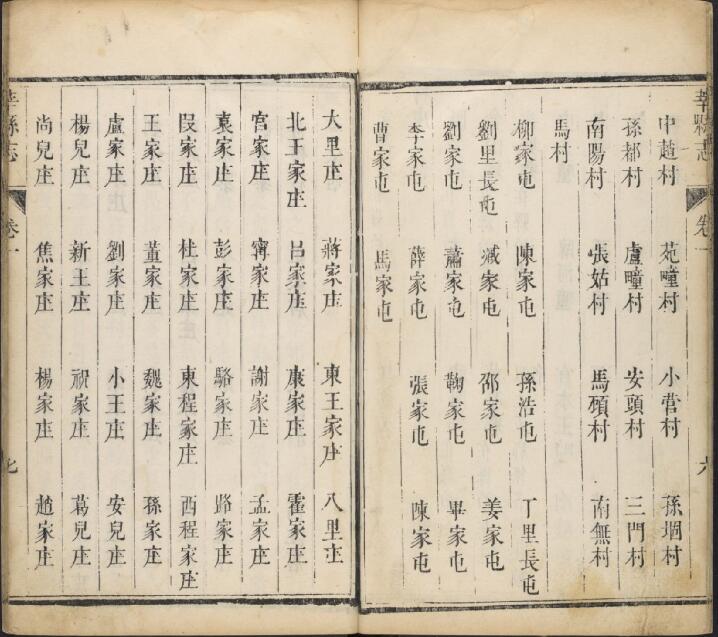 莘縣志
卷一
六
中趙村 苑疃村 小菅村 孫堌村
孫都村 盧疃村 安頭村 三門村
南陽村 張姑村 馬殯村 南無村
馬村
柳家屯 陳家屯 孫浩屯 丁里長屯
劉里長屯 臧家屯 邵家屯 姜家屯
劉家屯 蕭家屯 鞠家屯 畢家屯
李家屯 薛家屯 張家屯 陳家屯
曹家屯 馬家屯
大里庄 蔣家庄 東王家庄 八里庄
北王家庄 呂家庄 康家庄 霍家庄
宫家庄 甯家庄 謝家庄 孟家庄
袁家庄 彭家庄 駱家庄 路家庄
段家庄 杜家庄 東程家庄 西程家庄
王家庄 董家庄 魏家庄 孫家庄
盧家庄 劉家庄 小王庄 安兒庄
楊兒庄 新王庄 祝家庄 葛兒庄
尚兒庄 焦家庄 楊家庄 趙家庄
莘縣志
卷一
七